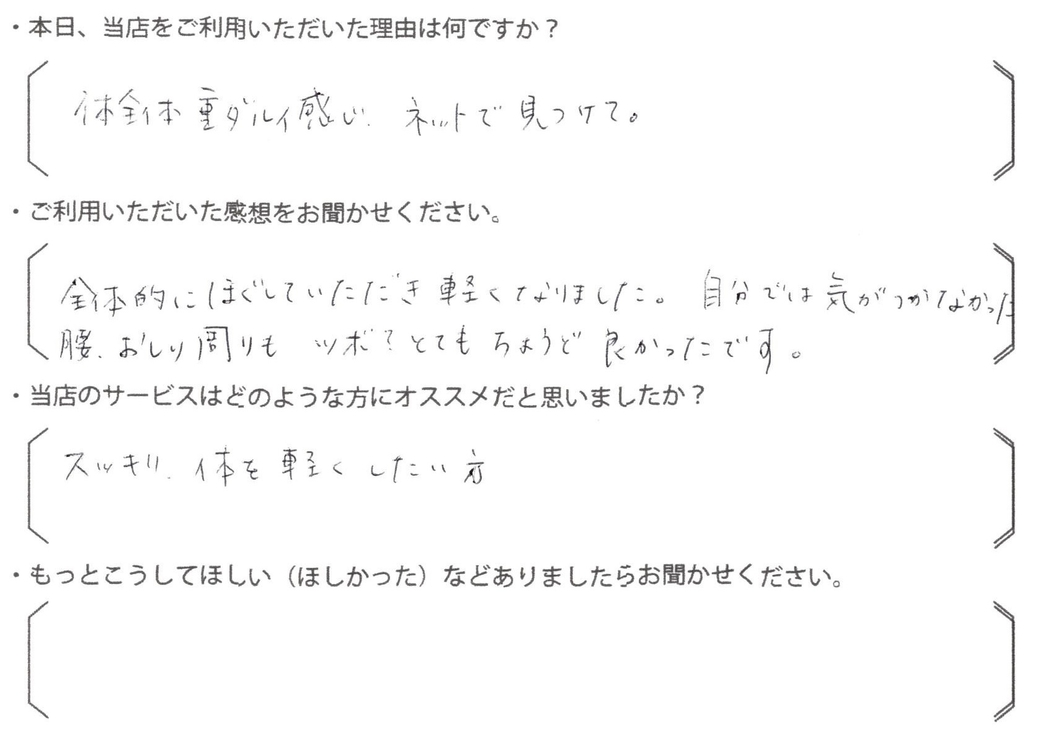 ・本日、当店をご利用いただいた理由は何ですか？
体全体重ダルイ感じ、ネットで見つけて。
・ご利用いただいた感想をお聞かせください。
全体的にほぐしていただき軽くなりました。自分では気がつかなかった
腰、おしり周りも ツボ？とてもちょうど良かったです。
・当店のサービスはどのような方にオススメだと思いましたか？
スッキリ、体を軽くしたい方
・もっとこうしてほしい（ほしかった）などありましたらお聞かせください。